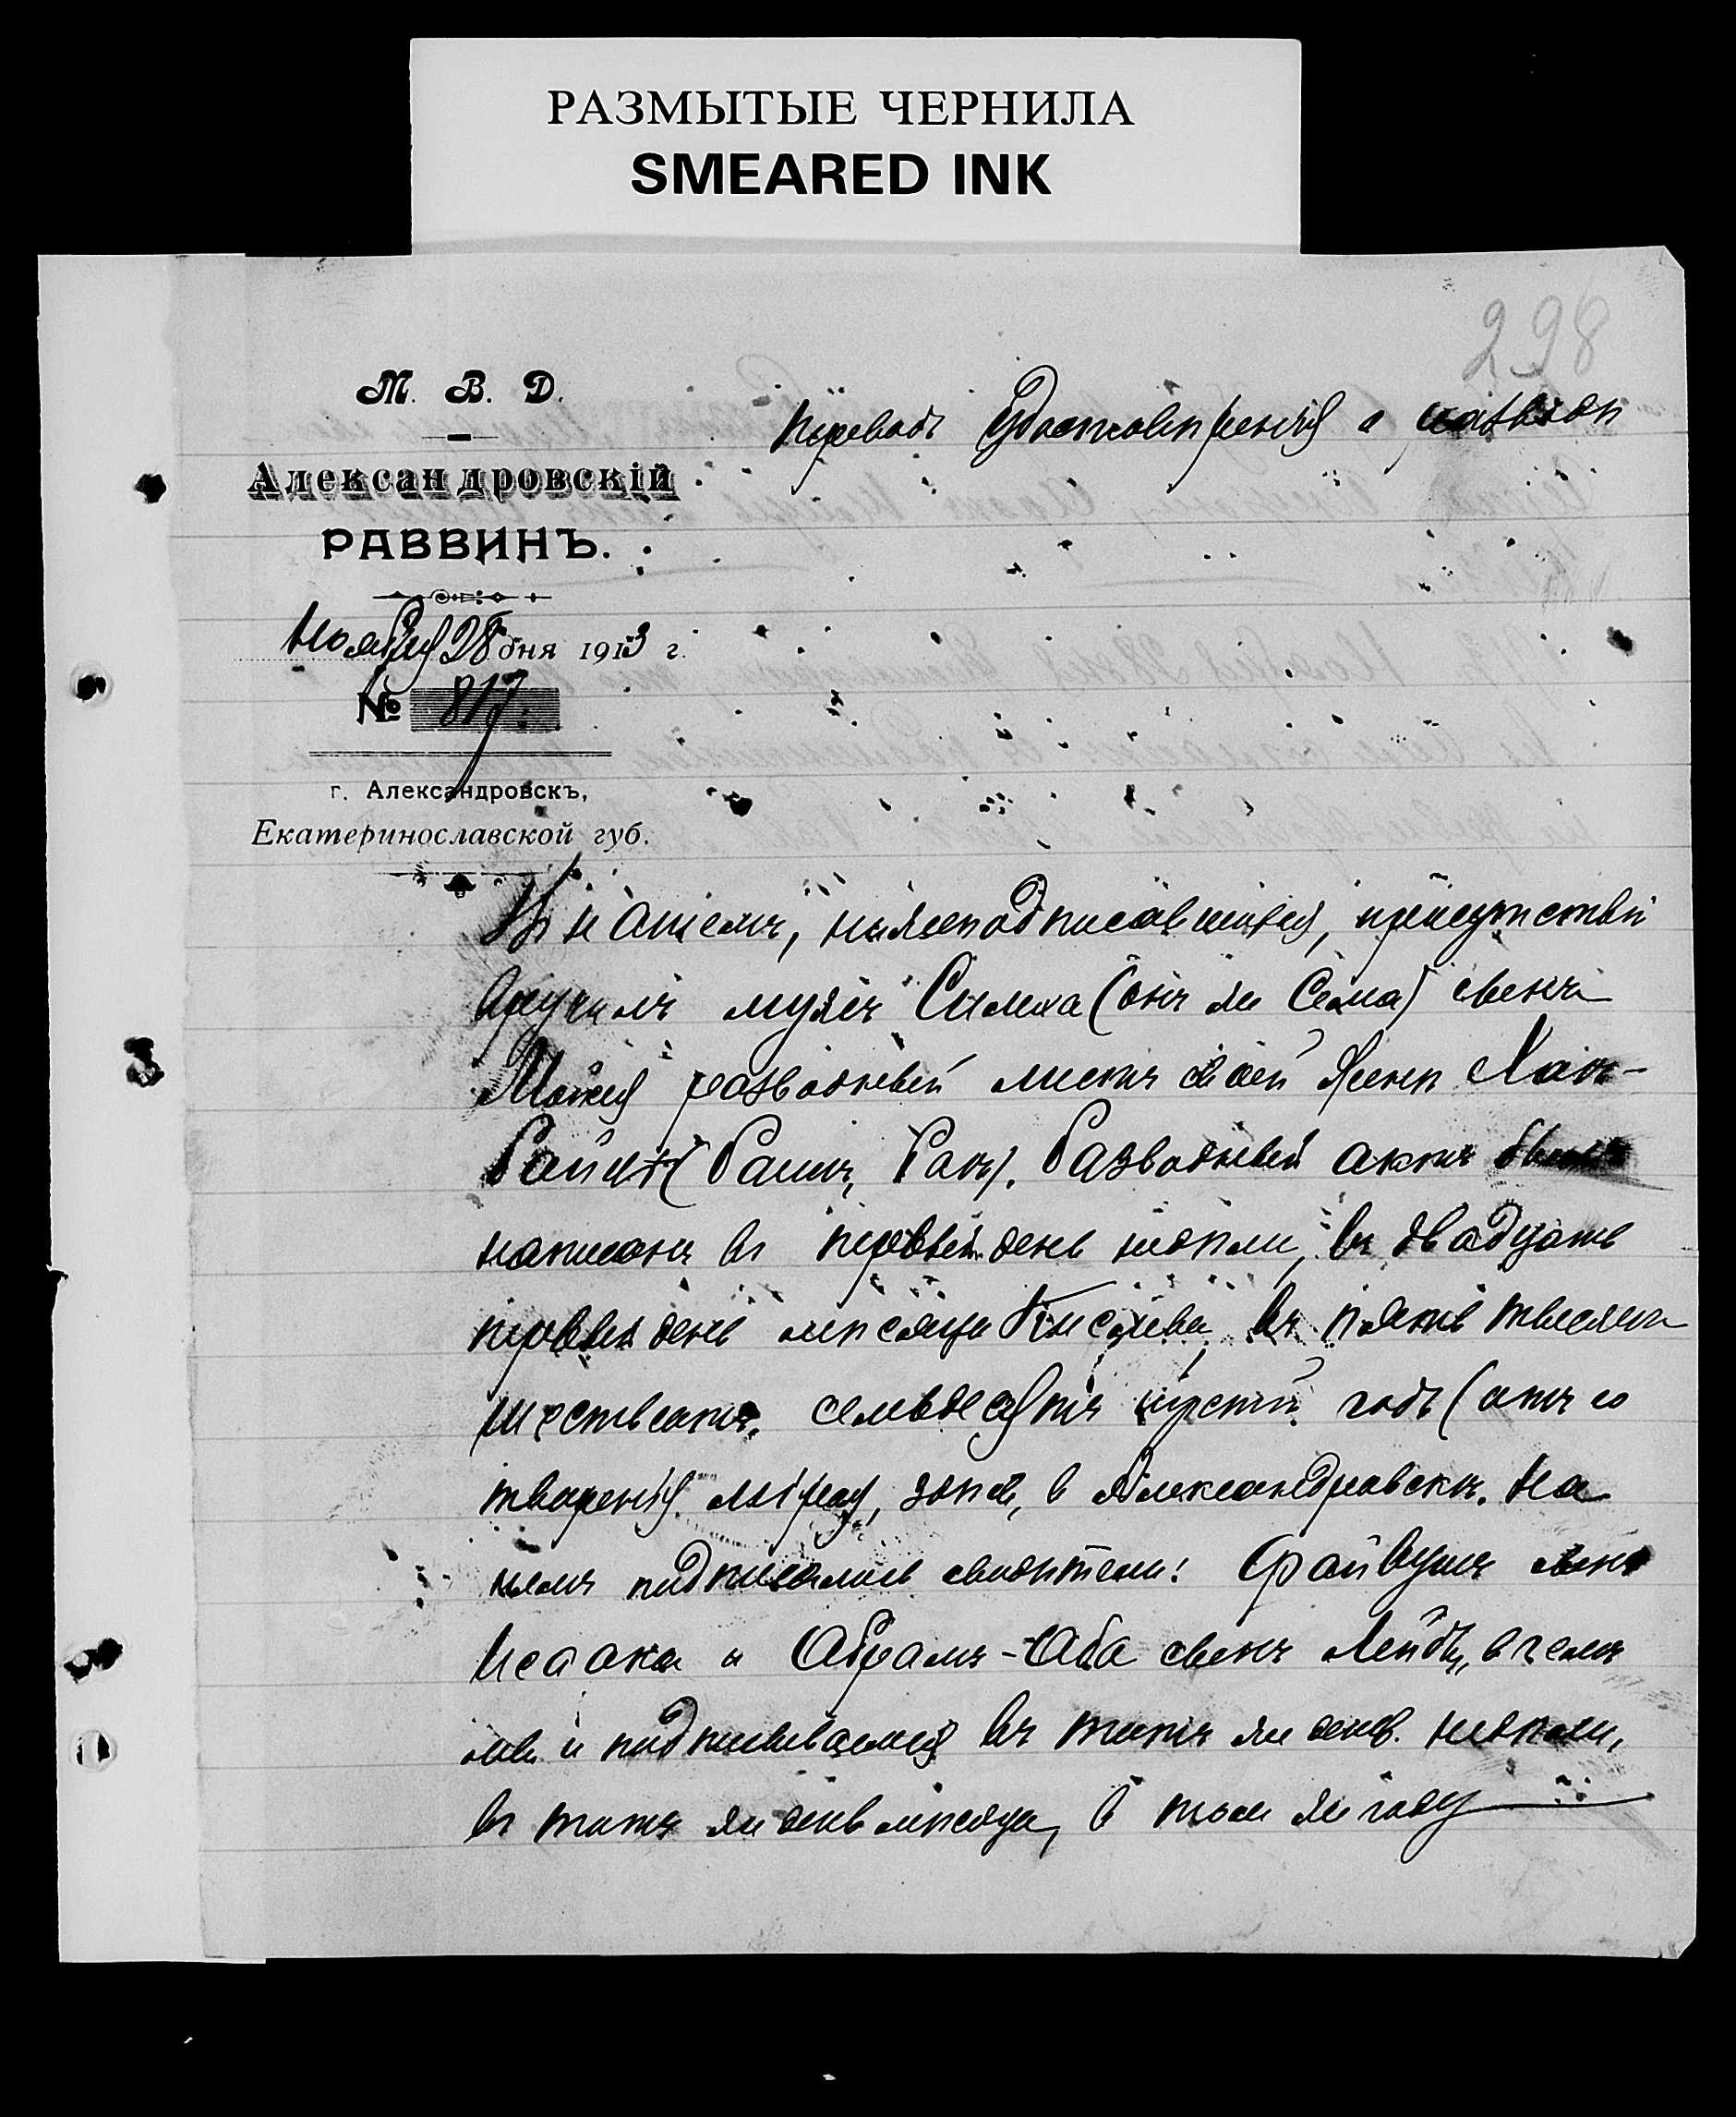 РАЗМЫТЫЕ ЧЕРНИЛА
SMEARED INK
298
М. В. Д.
Александровскій
РАВВИНЪ.
Ноября 28 дня 1913 г.
№ 817
г. Александровскъ,
Екатеринославской губ.
Переводъ Удостовѣренія о разводѣ
Въ нашемъ, нижеподписавшихся, присутствіи
вручилъ мужъ Симха (онъ же Сема) сынъ
разводный листъ своей женѣ Хаѣ-
Райцѣ (Раши, Раѣ). Разводный актъ былъ
написанъ въ первый день недѣли, въ двадцать
первый день мѣсяца Кислева въ пять тысячъ
шестьсотъ семьдесятъ третій годъ (отъ со
творенія міра), здѣсь, в Александровскѣ. На
немъ подписались свидѣтели: Файвушъ сынъ
Исаака и Абрамъ-Аба сынъ Лейбы, в чемъ
мы и подписываемся въ тотъ же день недѣли,
въ тотъ же день мѣсяца, в томъ же году